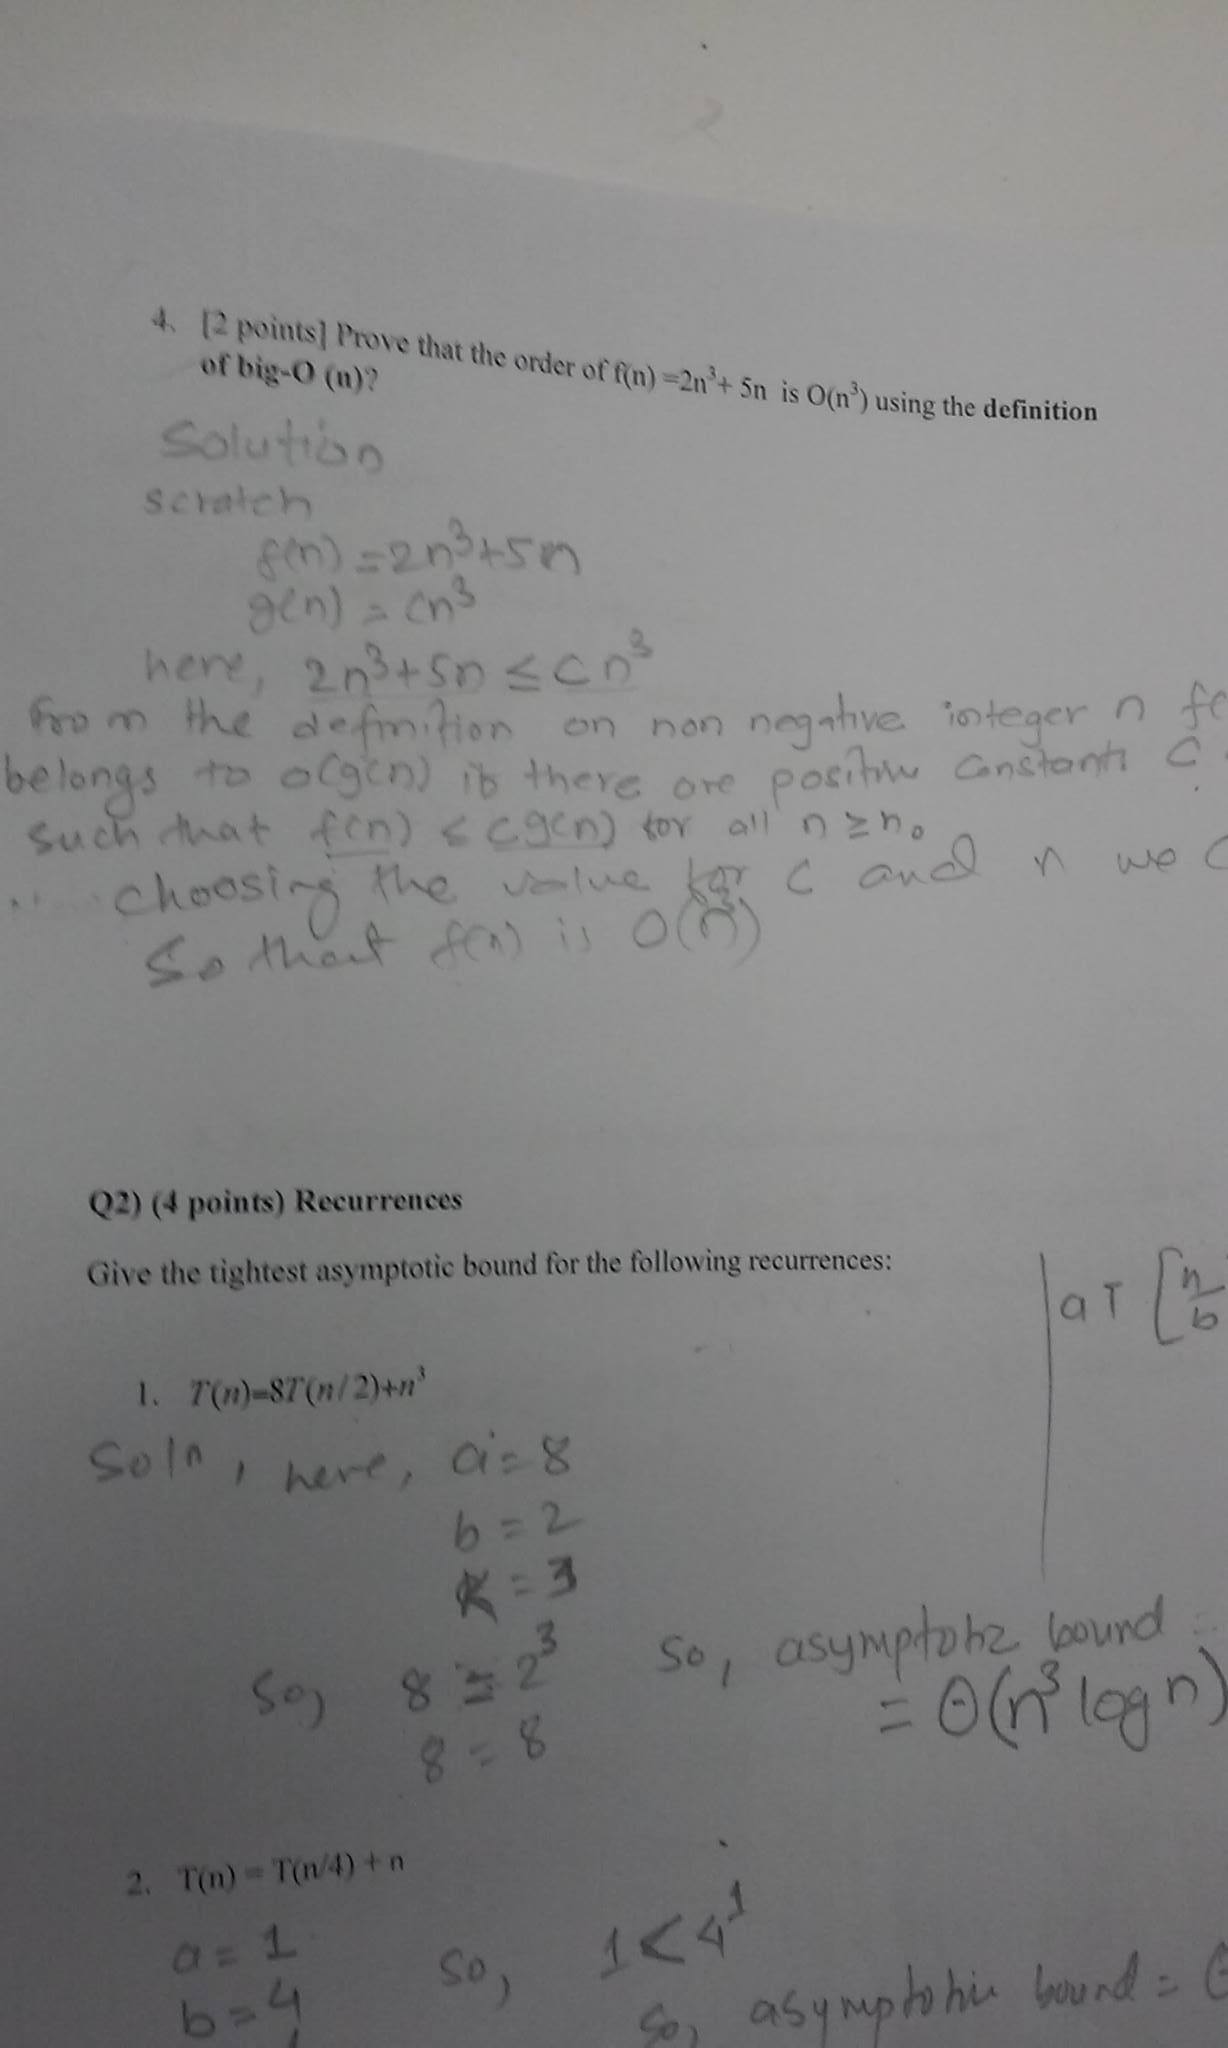 4. [2 points] Prove that the order of f(n) =2n³+ 5n is O(n³) using the definition
of big-O (n)?
Solution
scratch
f(n) = 2n³+5n
g(n) = cn³
here, 2n³+5n ≤ cn³
From the definition on non negative integer n
belongs to o(g(n)) if there are positive constants C
such that f(n) ≤ cg(n) for all n ≥ n₀
choosing the value for c and n we
So that f(n) is O(n³)
Q2) (4 points) Recurrences
Give the tightest asymptotic bound for the following recurrences:
aT [n/b
1. T(n)=8T(n/2)+n³
Soln, here, a = 8
b = 2
K = 3
So, 8 = 2³
8 = 8
so, asymptotic bound
= Θ(n³ log n)
2. T(n) = T(n/4) + n
a = 1
b = 4
so, 1 < 4¹
So, asymptotic bound =